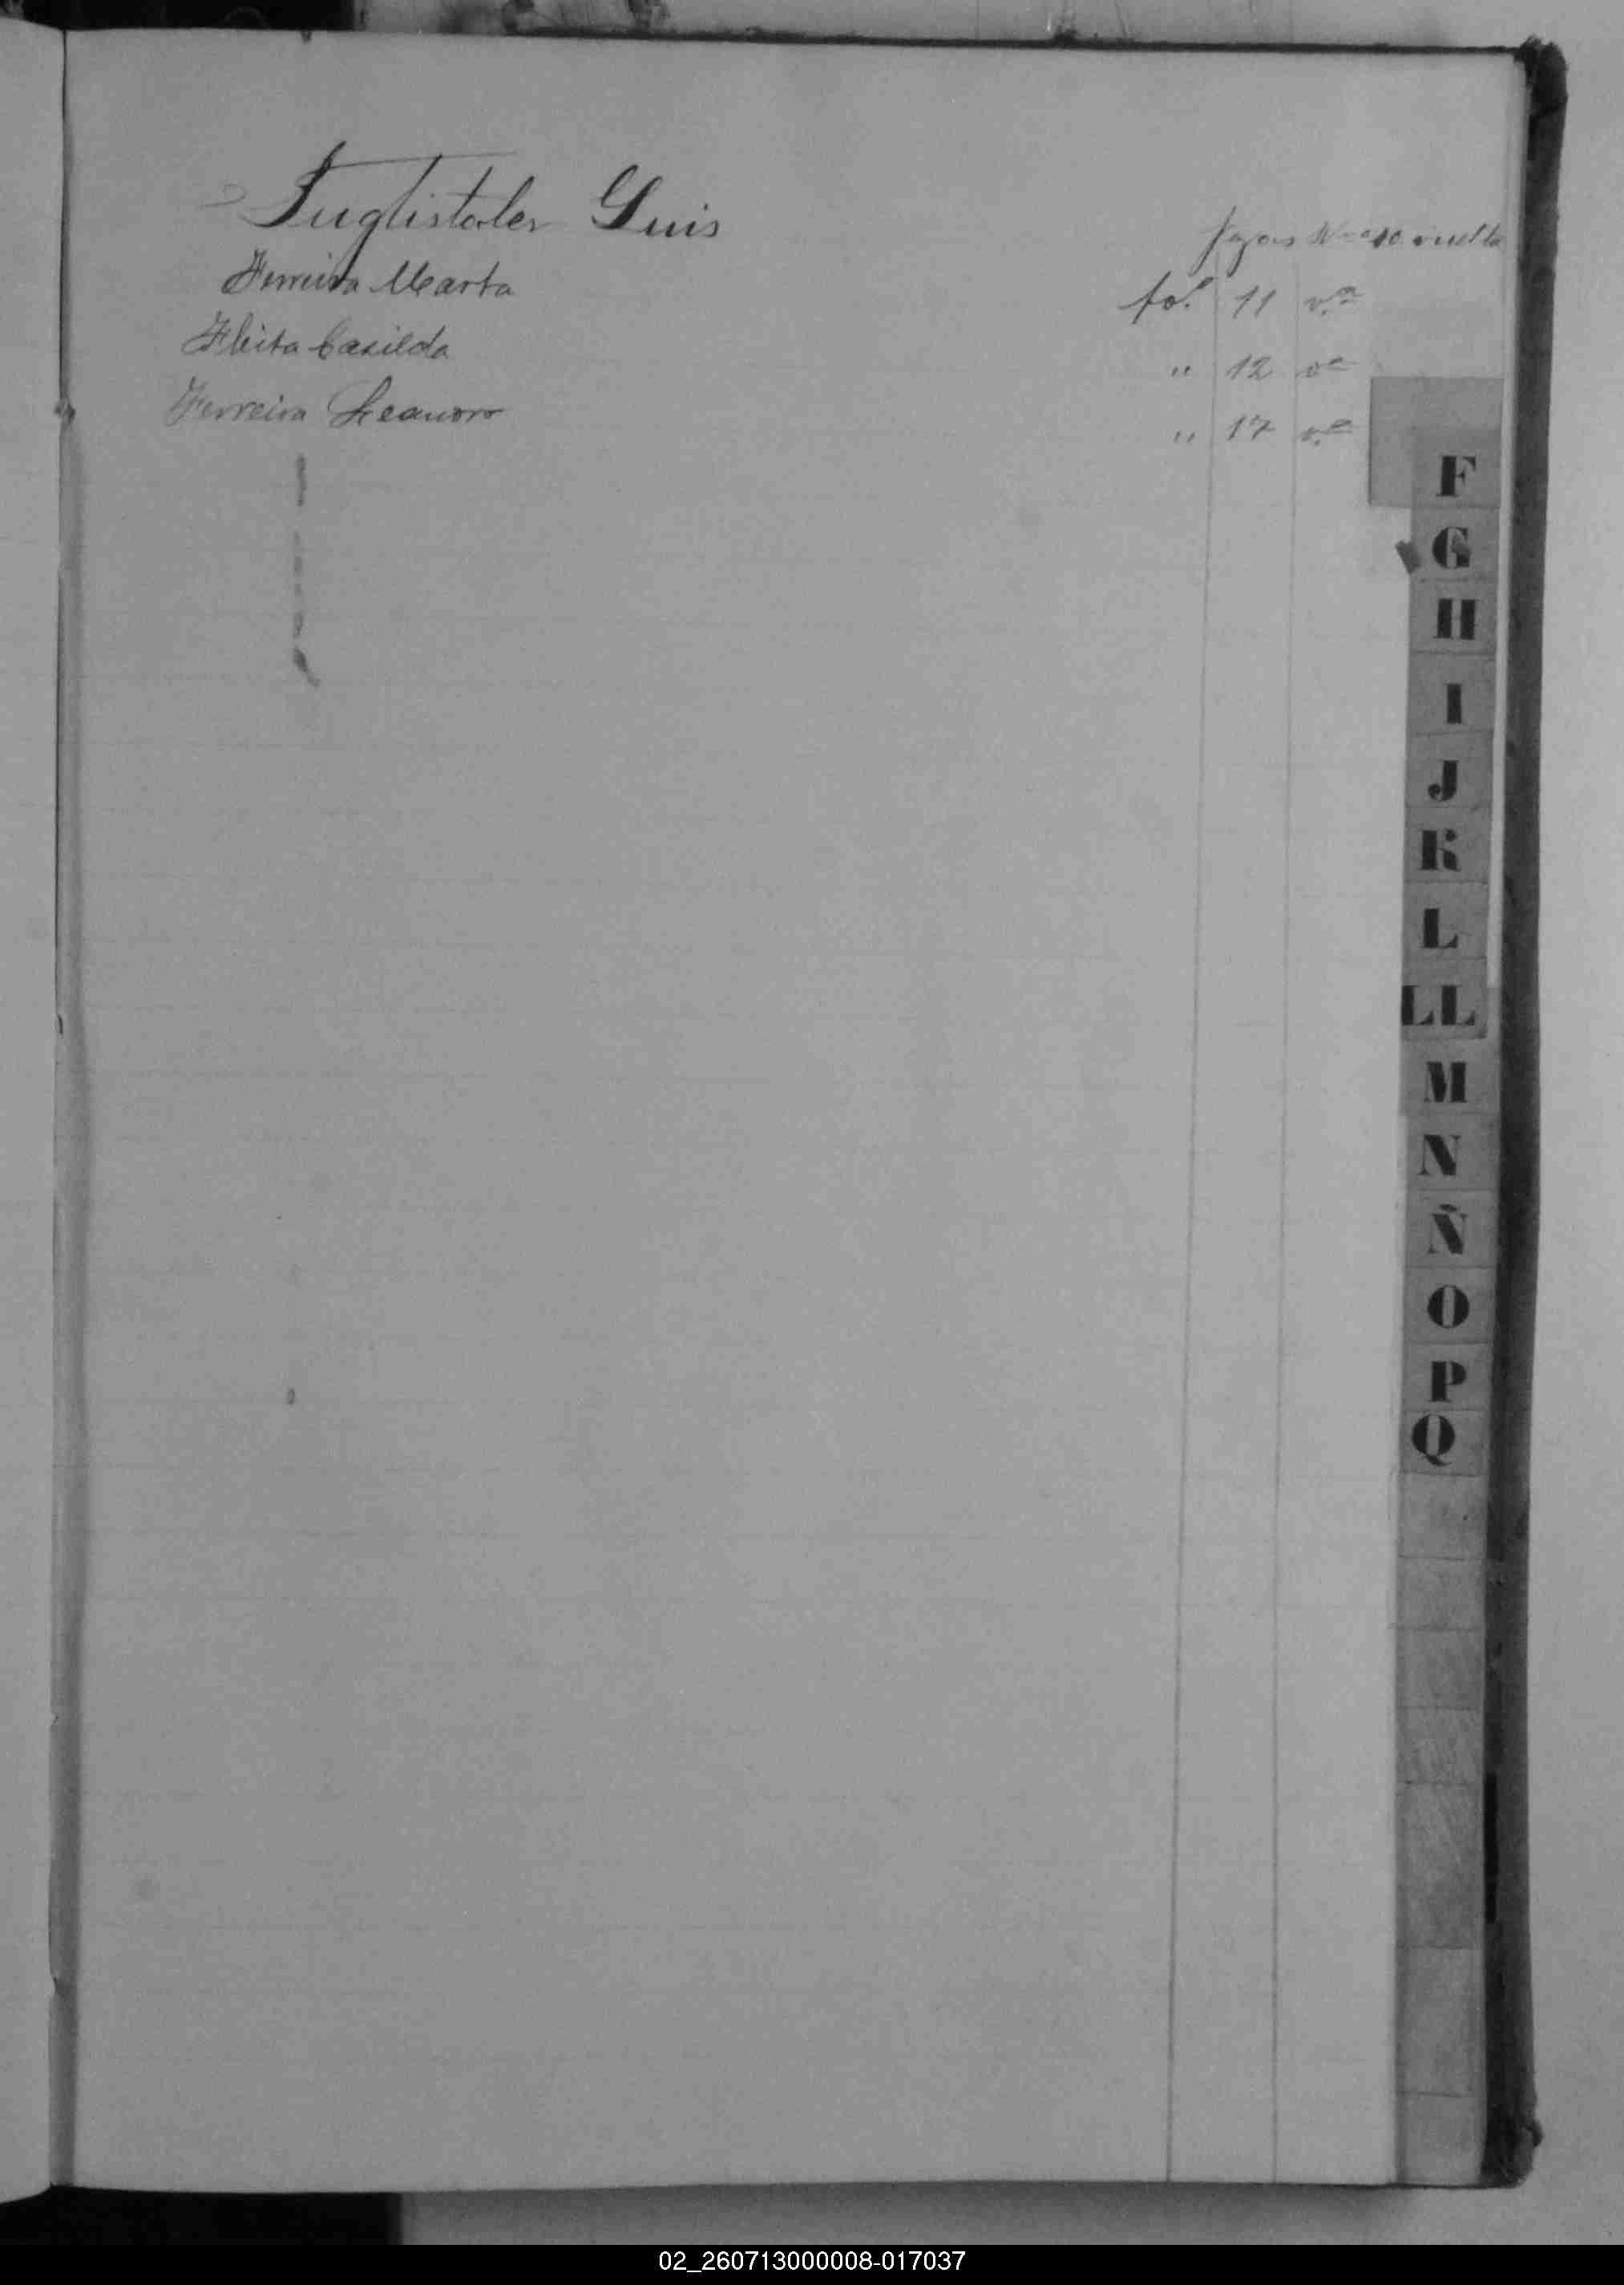 Fuglistaler Luis fojas No 10 vuelta
Ferreira Marta fo. 11 v.ta
Fleita Casilda " 12 vta
Ferreira Leandro " 17 v.ta
F
G
H
I
J
K
L
LL
M
N
Ñ
O
P
Q
02_260713000008-017037